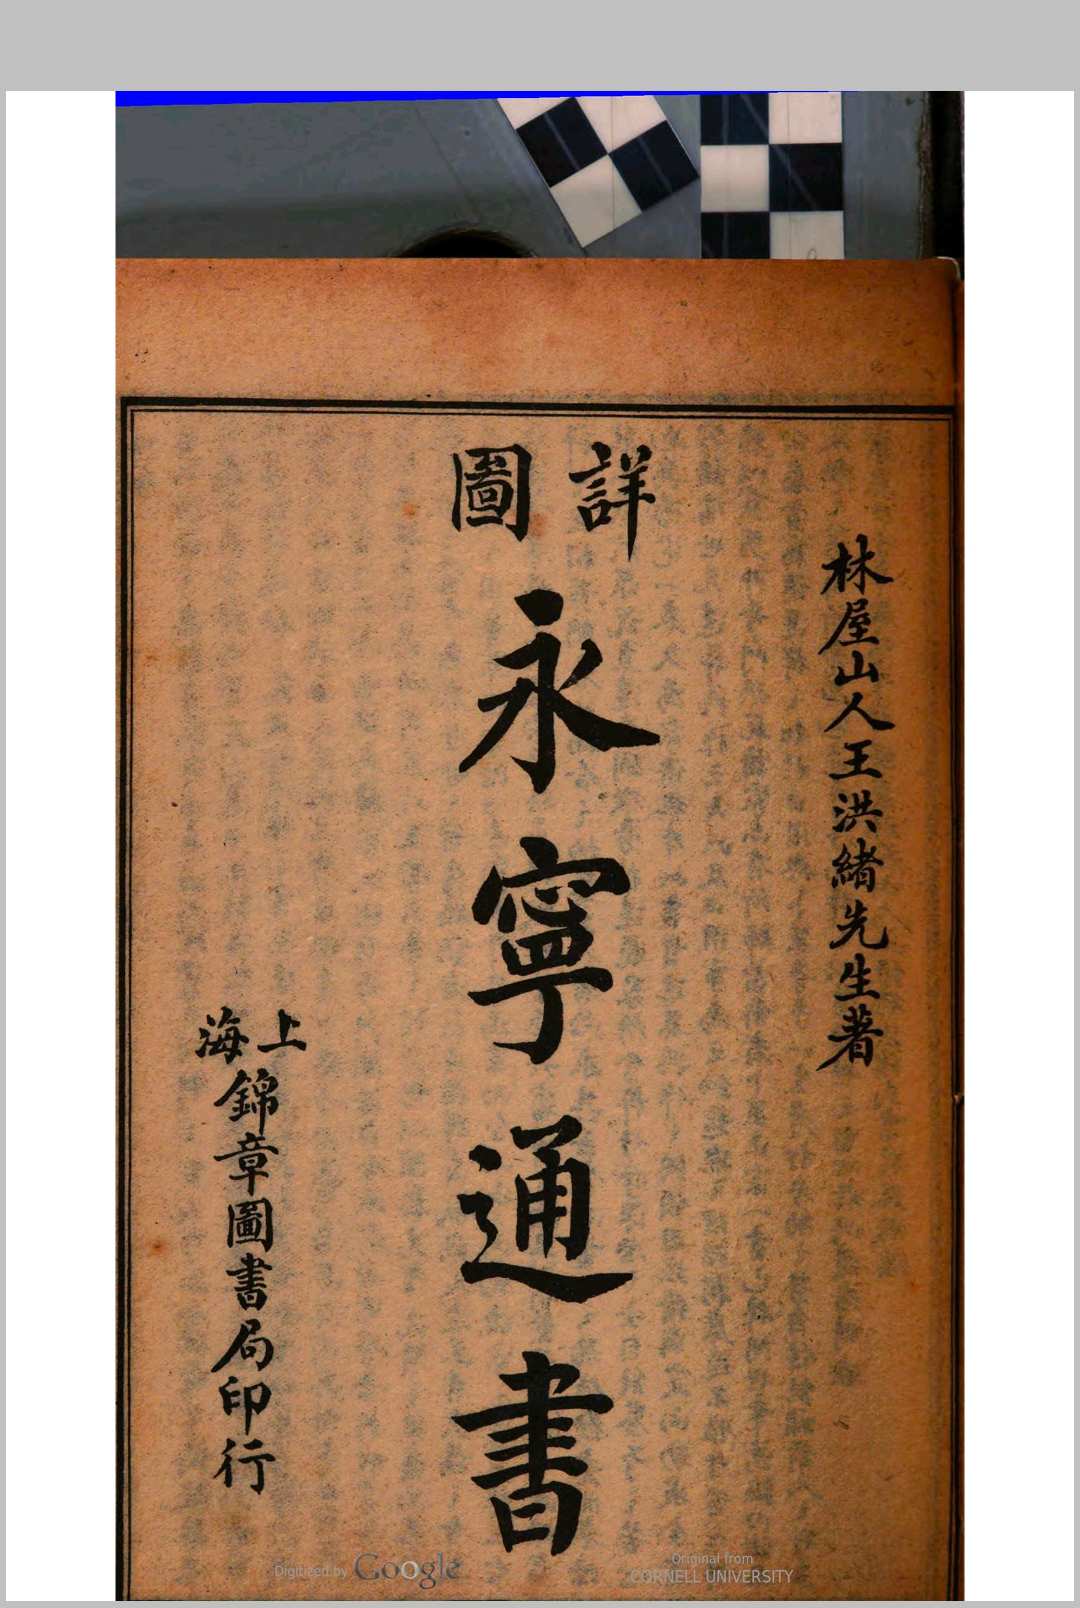 林屋山人王洪緒先生著
詳圖
永寧通書
上海
錦章圖書局印行
Digitized by Google
Original from
CORNELL UNIVERSITY